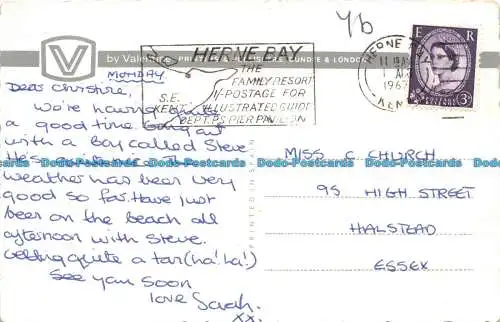 Yb
by Valentine
PRINTERS & PUBLISHERS DUNDEE & LONDON
HERNE BAY
THE
FAMILY RESORT
S.E. KENT
POSTAGE FOR
ILLUSTRATED GUIDE
DEPT. P5 PIER PAVILION
HERNE BAY
11
1967
KENT
E R
POSTAGE REVENUE
3D
MONDAY
Dear Christine,
We're having
a good time. Going out
with a boy called Steve
He
weather has been very
good so far. Have just
been on the beach all
afternoon with Steve.
Getting quite a tan (ha! ha!)
See you soon
love Sarah.
xx.
PRINTED IN
MISS C CHURCH
95 HIGH STREET
HALSTEAD
ESSEX
Dads-Postcards Dads-Postcards Dads-Postcards Dads-Postcards